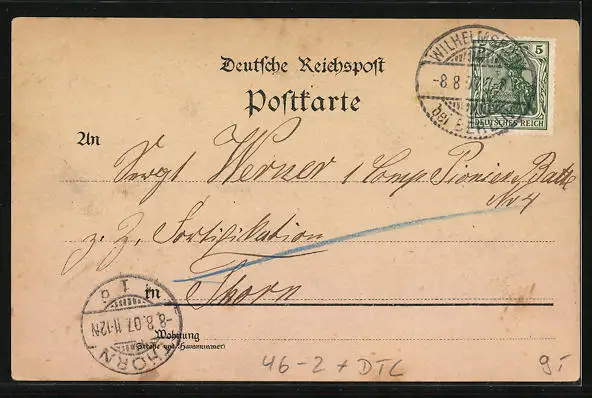 WILHELMS
-8.8.07
bei BER
5 5
DEUTSCHES REICH
Deutsche Reichspost
Postkarte
An
Sergt Werner 1 Comp. Pionier Batl.
No 4
z. Z. Fortifikation
in Thorn
THORN
-8.8.07.11-12N
Wohnung
(Straße und Hausnummer)
46-2 + DTC
9,-